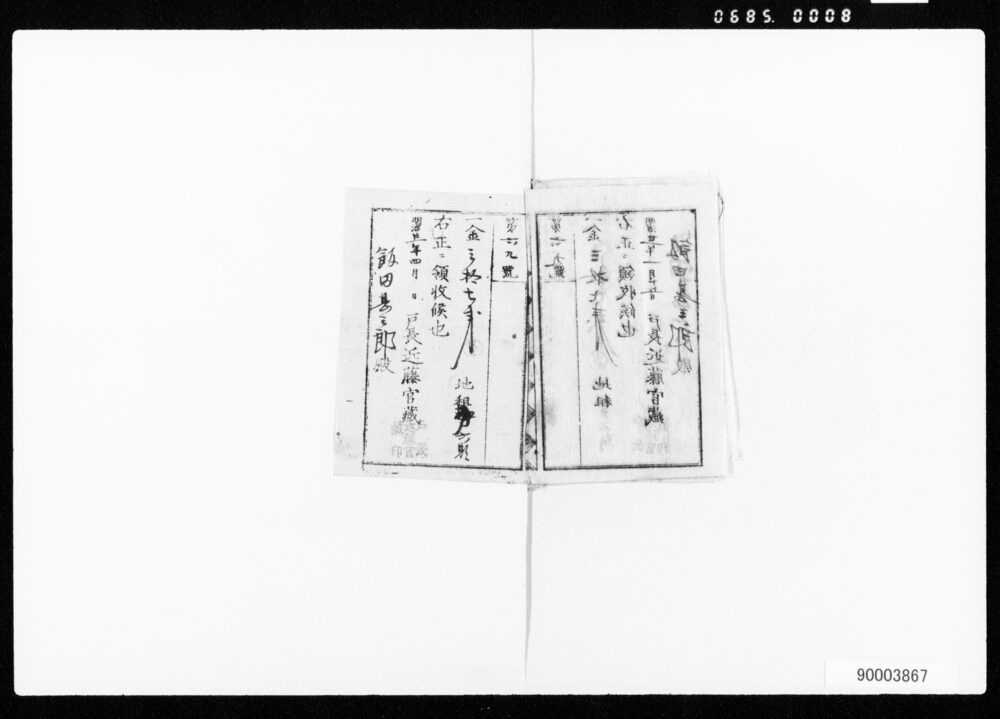 0685. 0008
第六九號
一金三拾七
地租
右正ニ領收候也
年四月 日 戸長近藤官藏
飯田甚三郎殿
第六九號
一金三拾七
地租
右正ニ領收候也
戸長近藤官藏
飯田甚三郎殿
90003867